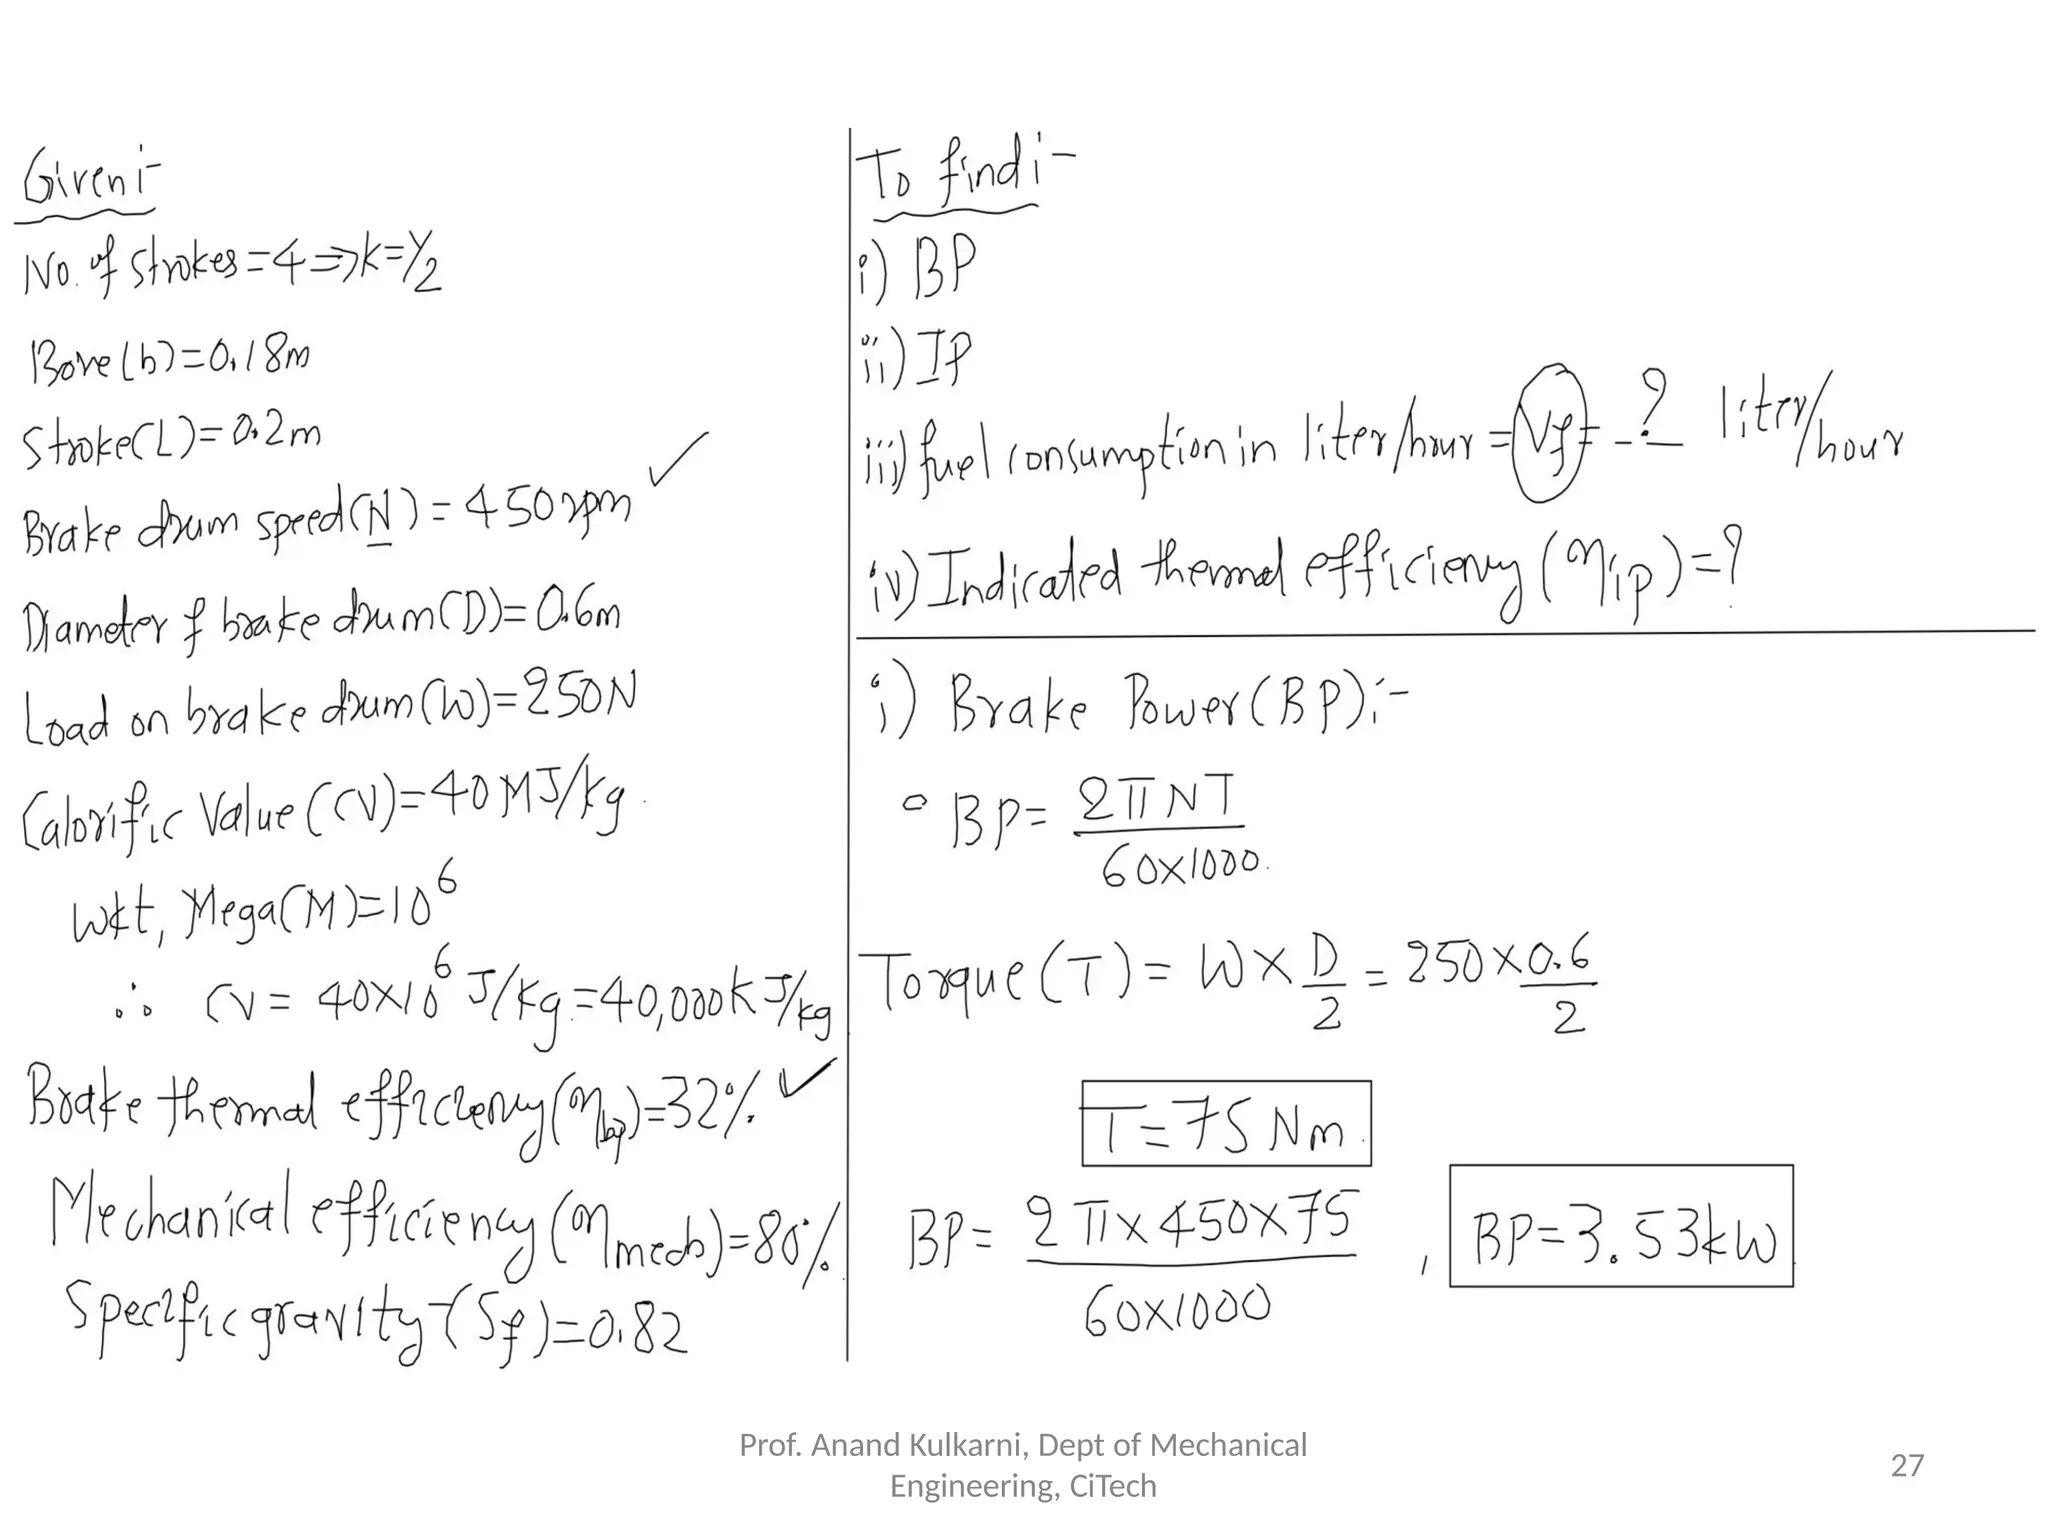 Given:-
No. of strokes = 4 ⇒ k = 1/2
Bore (b) = 0.18m
Stroke (L) = 0.2m
Brake drum speed (N) = 450 rpm ✓
Diameter of brake drum (D) = 0.6m
Load on brake drum (W) = 250N
Calorific Value (CV) = 40 MJ/kg.
Wkt, Mega (M) = 10^6
∴ CV = 40×10^6 J/kg = 40,000 kJ/kg
Brake thermal efficiency (η_bp) = 32% ✓
Mechanical efficiency (η_mech) = 80%
Specific gravity (Sf) = 0.82
To find:-
i) BP
ii) IP
iii) fuel consumption in liter/hour = Vf = _?_ liter/hour
iv) Indicated thermal efficiency (η_ip) = ?
i) Brake Power (BP):-
∘ BP = 2πNT / 60×1000.
Torque (T) = W × D/2 = 250 × 0.6/2
T = 75 Nm.
BP = 2π×450×75 / 60×1000 , BP = 3.53kW
Prof. Anand Kulkarni, Dept of Mechanical
Engineering, CiTech
27